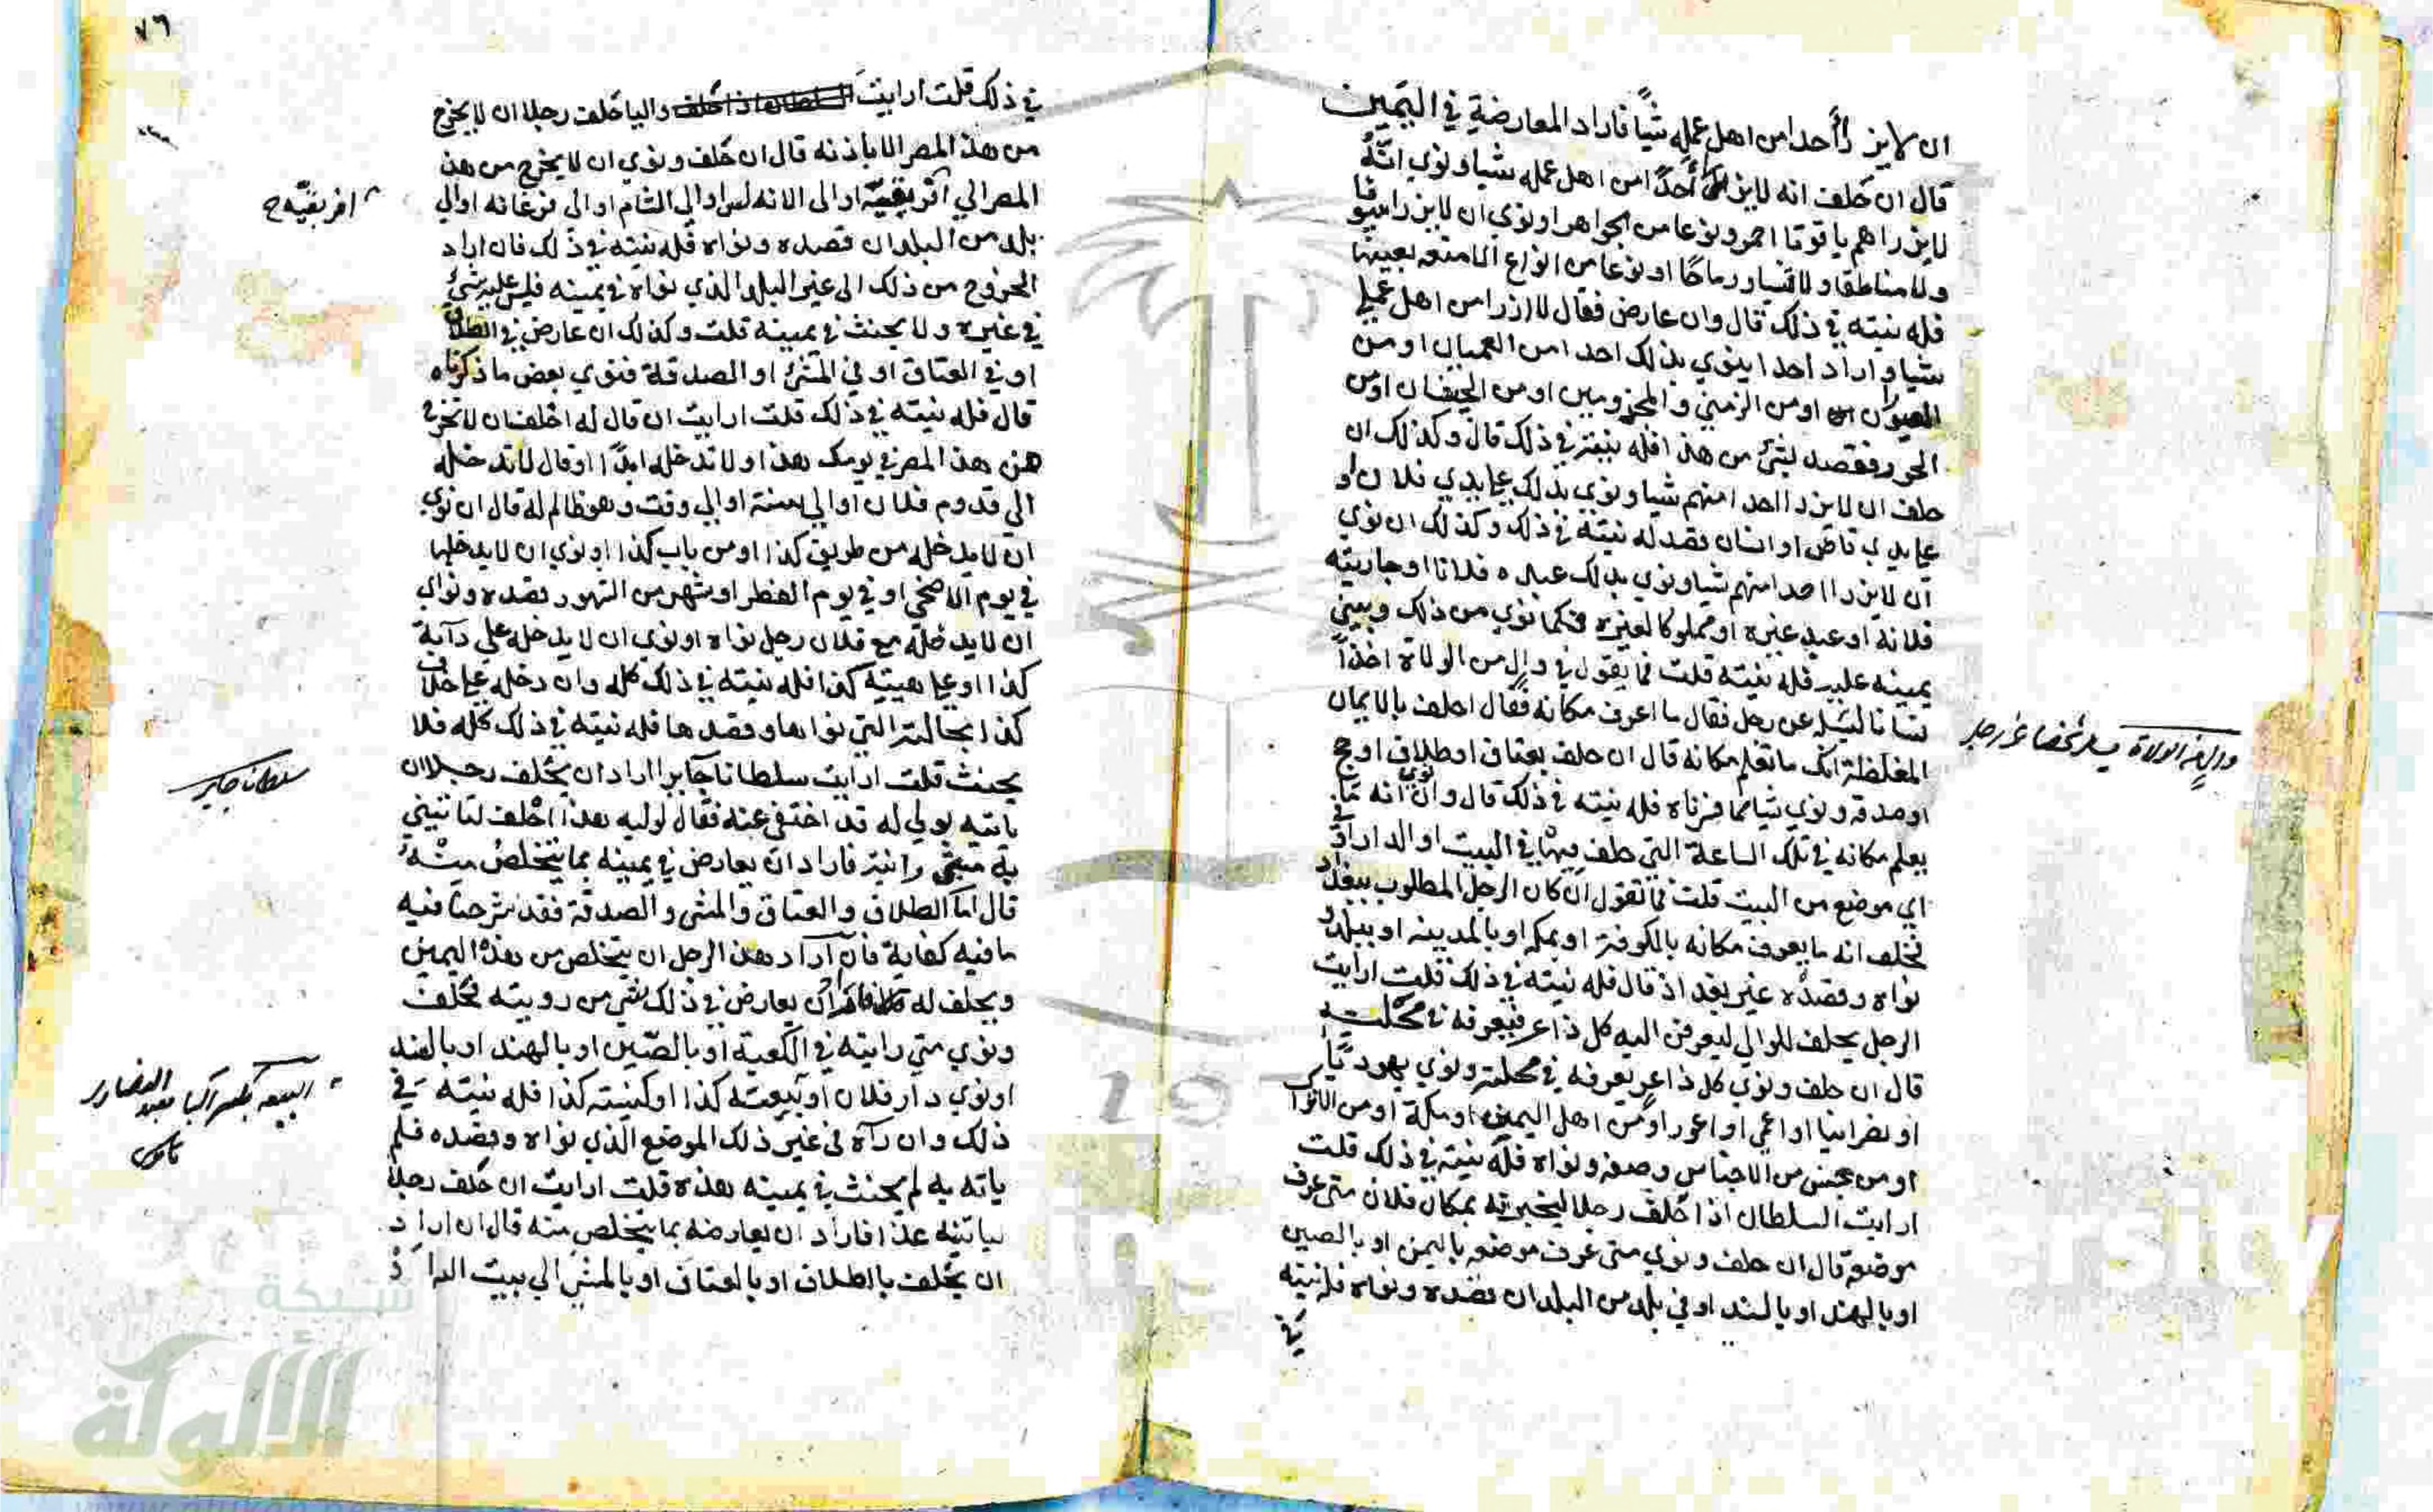 ان لا يزرأ أحدا من اهل عمله شيًا فاراد المعارضة في اليمين
قال ان حلف انه لا يزرأ أحدًا من اهل عمله شيا ونوي انّه
لا يزراهم ياقوتا احمر ونوعا من الجواهر او نوي ان لا يزراسيوفا
ولا مناطقا ولا قسيا ورماحًا او نوعا من انواع الامتعه بعينها
فله نيته في ذلك قال وان عارض فقال لا ازرا من اهل عملي
شيا واراد احدا ينوي بذلك احدا من العميان او من
العوران او من الزمني والمجزومين او من
الحور فقصد بشئ من هذا فله نيته في ذلك قال وكذلك ان
حلف ان لا يزرا احدا منهم شيا ونوي بذلك علي يدي فلان او
علي يدي قاض او انسان بقصد له نيته في ذلك وكذلك ان نوي
ان لا يزرا احدا منهم شيا ونوي بذلك عبده فلانا او جاريته
فلانه او عبد غيره او مملوكا لغيره فكما نوي من ذلك ويبني
يمينه عليه فله نيته قلت فما يقول في والٍ من الولاة اخذ
انسانا ليسله عن رجل فقال ما اعرف مكانه فقال احلف بالايمان
المغلظة انك ما تعلم مكانه قال ان حلف بعتاق او طلاق او حج
او صدقه ونوي شيا مما فسرناه فله نيته في ذلك قال وان نوي انه ما
يعلم مكانه في تلك الساعة التي حلف فيها في البيت او الدار او في
اي موضع من البيت قلت فما تقول ان كان الرجل المطلوب ببغداد
فحلف انه ما يعرف مكانه بالكوفة او بمكه او بالمدينه او ببلد
نواه وقصده غير بغداد قال فله نيته في ذلك قلت ارايت
الرجل يحلف للوالي ليعرفن اليه كل ذاعر فيعرفه في محلته
قال ان حلف ونوي كل ذاعر يعرفه في محلته ونوي يهوديًا
او نصرانيا او اعمي او اعور او من اهل اليمن او مكة او من الاتراك
او من جنس من الاجناس وصفه ونواه فله نيته في ذلك قلت
ارايت السلطان اذا حلف رجلا ليخبرنه بمكان فلان متي عرف
موضعه قال ان حلف ونوي متي عرف موضعه باليمن او بالصين
او بالهند او بالسند او في بلد من البلدان قصده ونواه فله نيته
في
وال من الولاة يسل شخصا عن رجل
٧٦
في ذلك قلت ارايت السلطان اذا حلف واليا حلف رجلا ان لا يخرج
من هذا المصر الا باذنه قال ان حلف ونوي ان لا يخرج من هذا
المصر الي افريقيّة او الى الاندلس او الي الشام او الى فرغانه او الي
بلد من البلدان قصده ونواه فله نيته في ذلك فان اراد
الخروج من ذلك الى غير البلد الذي نواه في يمينه فليس عليه شئ
في غيره ولا يحنث في يمينه قلت وكذلك ان عارض في الطلاق
او في العتاق او في المشئ او الصدقة فنوي بعض ما ذكرناه
قال فله نيته في ذلك قلت ارايت ان قال له احلف ان لا تخرج
من هذا المصر في يومك هذا او لا تدخله ابدًا او قال لا تدخله
الي قدوم فلان او الي سنة او الي وقت وهو ظالم له قال ان نوي
ان لا يدخله من طريق كذا او من باب كذا او نوي ان لا يدخلها
في يوم الاضحي او في يوم الفطر او شهر من الشهور بقصده ونواي
ان لا يدخله مع فلان رجل نواه او نوي ان لا يدخله علي دآبة
كذا او علي هيئته كذا فله نيته في ذلك كله وان دخله علي خلاف
كذا بحالته التي نواها وقصدها فله نيته في ذلك كله فلا
يحنث قلت ارايت سلطانا جآيرا اراد ان يحلف رجلا ان
ياتيه بولي له قد اختفي عنه فقال لوليه هذا احلف لتاتيني
به متي رايته فاراد ان يعارض في يمينه بما يتخلص منه
قال اما الطلاق والعتاق والمشي والصدقة فقد شرحنا فيه
ما فيه كفاية فان اراد هذا الرجل ان يتخلص من هذه اليمين
ويحلف له ان يعارض في ذلك بشي من رويته فحلف
ونوي متي رايته في الكعبة او بالصّين او بالهند او بالسند
او نوي دار فلان او بيعته كذا او كنيته كذا فله نيته في
ذلك وان رآه في غير ذلك الموضع الذي نواه وقصده فلم
ياته به لم يحنث في يمينه هذه قلت ارايت ان حلف رجلا
لياتينه غدا فاراد ان يعارضه بما يتخلص منه قال ان اراد
ان يحلف بالطلاق او بالعتاق او بالمشي الي بيت الله اذ
افريقيّه ح
سلطانا جاير
البيعه بكسر البا معبد النصارى
قاموس
شبكة
الألوكة